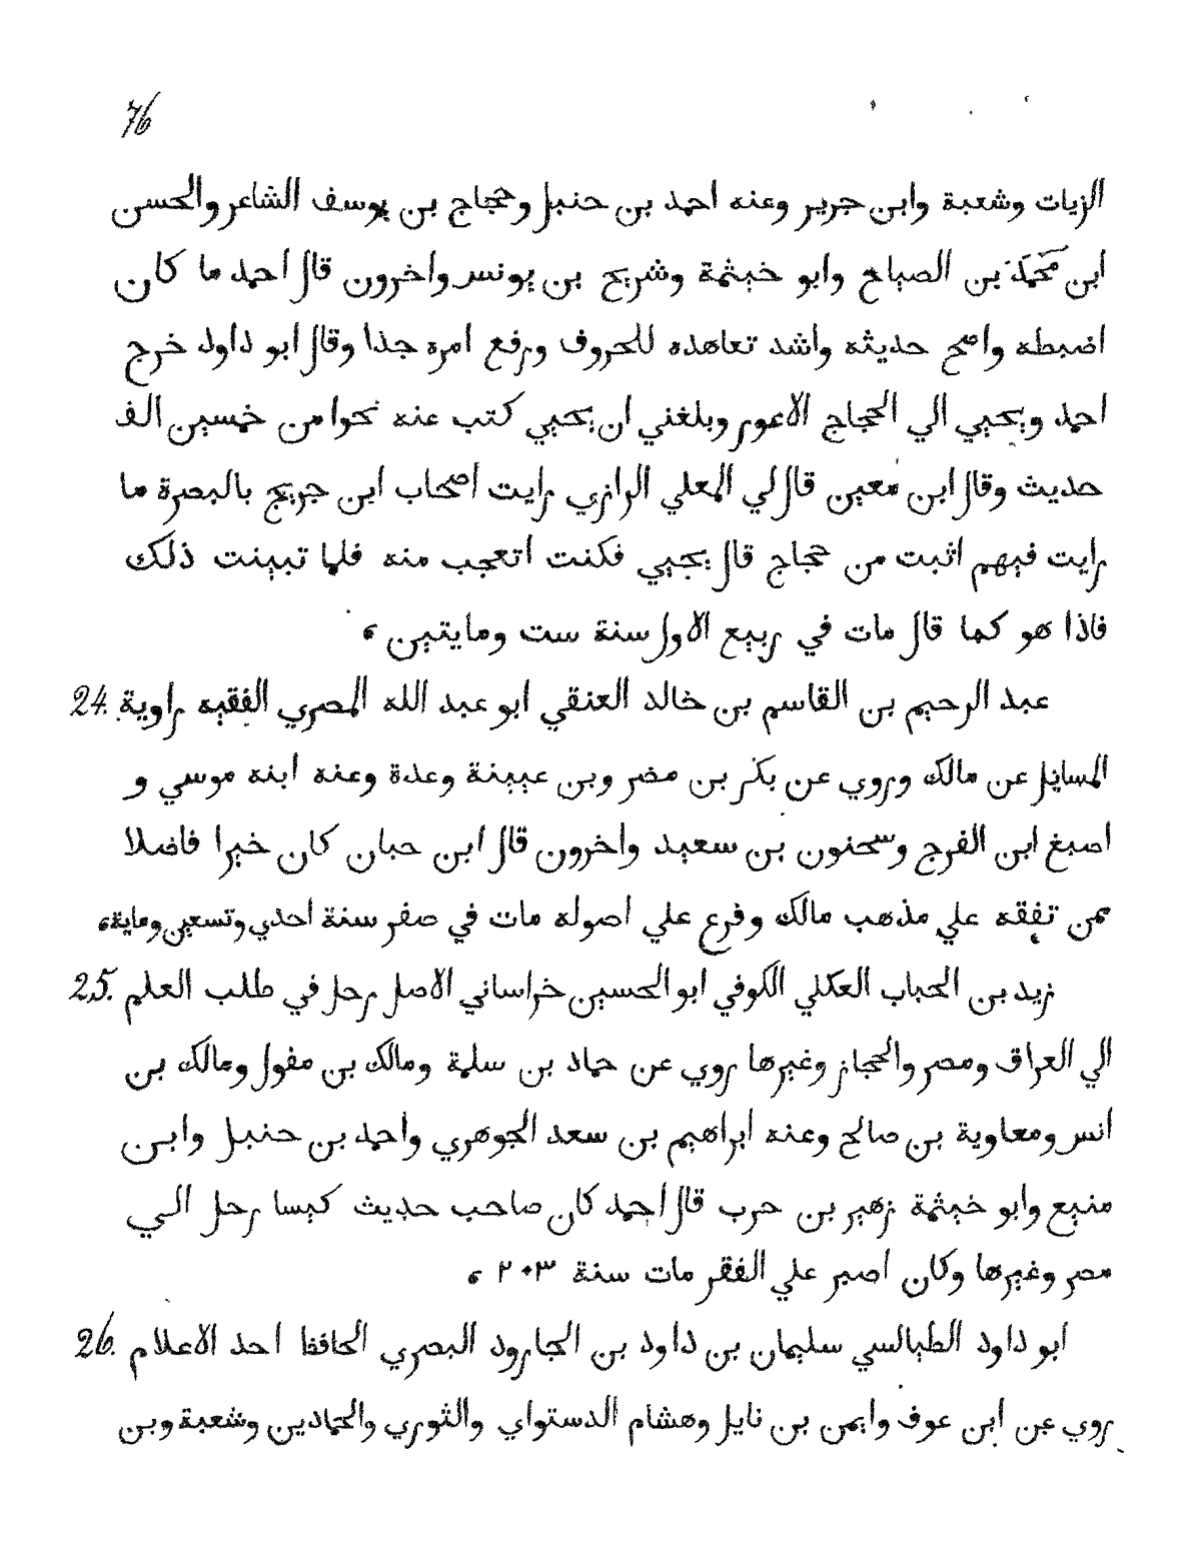 76
الزيات وشعبة وابن جرير وعنه احمد بن حنبل وحجاج بن يوسف الشاعر والحسن
ابن محمد بن الصباح وابو خيثمة وشريح بن يونس واخرون قال احمد ما كان
اضبطه واصح حديثه واشد تعاهده للحروف ورفع امره جدا وقال ابو داود خرج
احمد ويحيي الي الحجاج الاعور وبلغني ان يحيي كتب عنه نحوا من خمسين الف
حديث وقال ابن معين قال لي المعلي الرازي رايت اصحاب ابن جريج بالبصرة ما
رايت فيهم اثبت من حجاج قال يحيي فكنت اتعجب منه فلما تبينت ذلك
فاذا هو كما قال مات في ربيع الاول سنة ست ومايتين ،
24. عبد الرحيم بن القاسم بن خالد العنقي ابو عبد الله المصري الفقيه راوية
المسايل عن مالك وروي عن بكر بن مضر وبن عيينة وعدة وعنه ابنه موسي و
اصبغ ابن الفرج وسحنون بن سعيد واخرون قال ابن حبان كان خيرا فاضلا
ممن تفقه علي مذهب مالك وفرع علي اصوله مات في صفر سنة احدي وتسعين وماية،
25. زيد بن الحباب العكلي الكوفي ابو الحسين خراساني الاصل رحل في طلب العلم
الي العراق ومصر والحجاز وغيرها روي عن حماد بن سلمة ومالك بن مفول ومالك بن
انس ومعاوية بن صالح وعنه ابراهيم بن سعد الجوهري واحمد بن حنبل وابن
منيع وابو خيثمة زهير بن حرب قال احمد كان صاحب حديث كيسا رحل الي
مصر وغيرها وكان اصبر علي الفقر مات سنة ٢٠٣ ،
26. ابو داود الطيالسي سليمان بن داود بن الجارود البصري الحافظ احد الاعلام
روي عن ابن عوف وايمن بن نايل وهشام الدستواي والثوري والحمادين وشعبة وبن